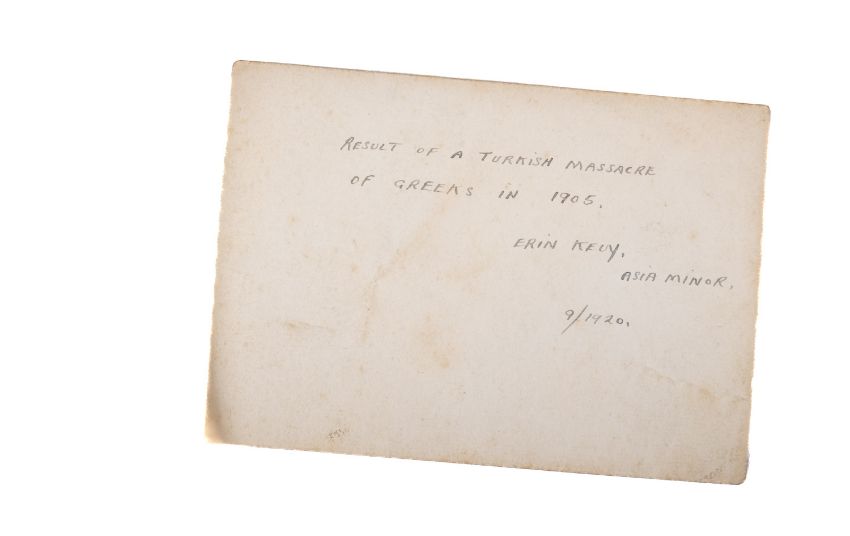 RESULT OF A TURKISH MASSACRE
OF GREEKS IN 1905.
ERIN KEUY,
ASIA MINOR.
9/1920.